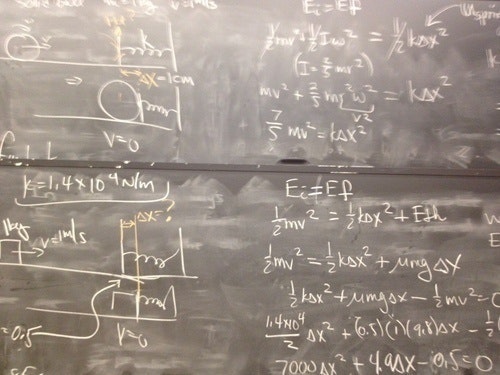 Solid ball m=1kg v=1m/s
k
Δx=1cm
⇒
V=0
Ei=Ef
½mv²+½Iω² = ½kΔx²
(I=⅖mr²)
mv²+⅖mr²ω² = kΔx²
v²
7/5 mv²=kΔx²
k=1.4×10⁴N/m
1kg
v=1m/s
Δx=?
=0.5
V=0
Ei=Ef
½mv²=½kΔx²+Eth
½mv²=½kΔx²+μmgΔx
½kΔx²+μmgΔx-½mv²=0
1.4×10⁴/2 Δx²+(0.5)(1)(9.8)Δx-½
7000Δx²+4.9Δx-0.5=0